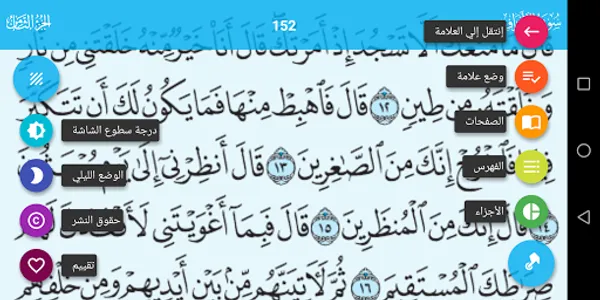 152
قَالَ مَا مَنَعَكَ أَلَّا تَسْجُدَ إِذْ أَمَرْتُكَ قَالَ أَنَا۠ خَيْرٌ مِّنْهُ خَلَقْتَنِى مِن نَّارٍ
وَخَلَقْتَهُۥ مِن طِينٍ ١٢ قَالَ فَٱهْبِطْ مِنْهَا فَمَا يَكُونُ لَكَ أَن تَتَكَبَّرَ
إِنَّكَ مِنَ ٱلصَّٰغِرِينَ ١٣ قَالَ أَنظِرْنِىٓ إِلَىٰ يَوْمِ
١٤ قَالَ إِنَّكَ مِنَ ٱلْمُنظَرِينَ ١٥ قَالَ فَبِمَآ أَغْوَيْتَنِى لَأَقْعُدَنَّ لَهُمْ
صِرَٰطَكَ ٱلْمُسْتَقِيمَ ١٦ ثُمَّ لَءَاتِيَنَّهُم مِّنۢ بَيْنِ أَيْدِيهِمْ وَمِنْ خَلْفِهِمْ
إنتقل إلي العلامة
وضع علامة
الصفحات
الفهرس
الأجزاء
درجة سطوع الشاشة
الوضع الليلي
حقوق النشر
تقييم